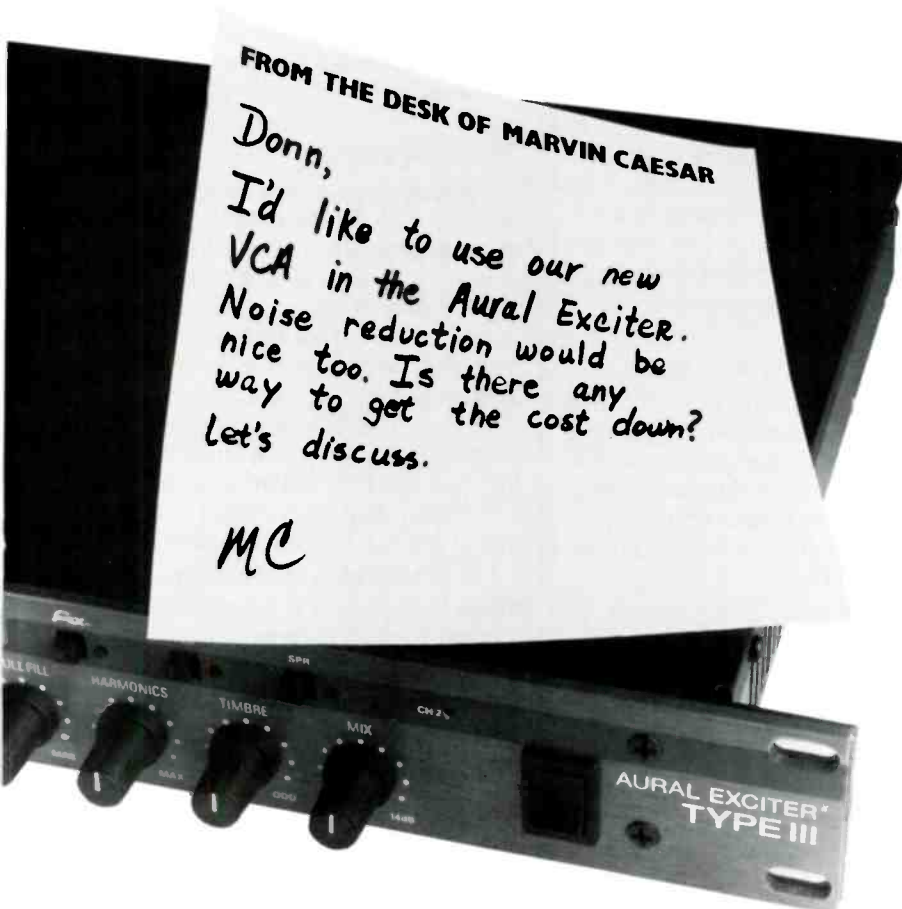 FROM THE DESK OF MARVIN CAESAR
Donn,
I'd like to use our new
VCA in the Aural Exciter.
Noise reduction would be
nice too. Is there any
way to get the cost down?
Let's discuss.
MC
SPR
CH 2
HARMONICS
TIMBRE
MIX
MAX
ODD
14dB
AURAL EXCITER
TYPE III